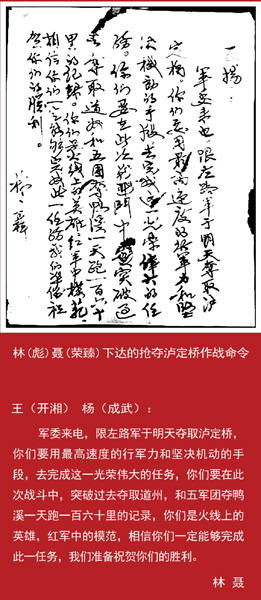 王、杨：
军委来电，限左路军于明天夺取泸
定桥。你们要用最高速度的行军力和坚
决机动的手段去完成这一光荣伟大的任
务。你们要在此次战斗中突破过
去夺取道州和五团夺鸭溪一天跑一百六十
里的纪录。你们是火线上的英雄，红军中模范，
相信你们一定能够完成此一任务，我们准备祝
贺你们的胜利。
林 聂
林（彪）聂（荣臻）下达的抢夺泸定桥作战命令
王（开湘） 杨（成武）：
军委来电，限左路军于明天夺取泸定桥，
你们要用最高速度的行军力和坚决机动的手
段，去完成这一光荣伟大的任务，你们要在此
次战斗中，突破过去夺取道州，和五军团夺鸭
溪一天跑一百六十里的记录，你们是火线上的
英雄，红军中的模范，相信你们一定能够完成
此一任务，我们准备祝贺你们的胜利。
林 聂